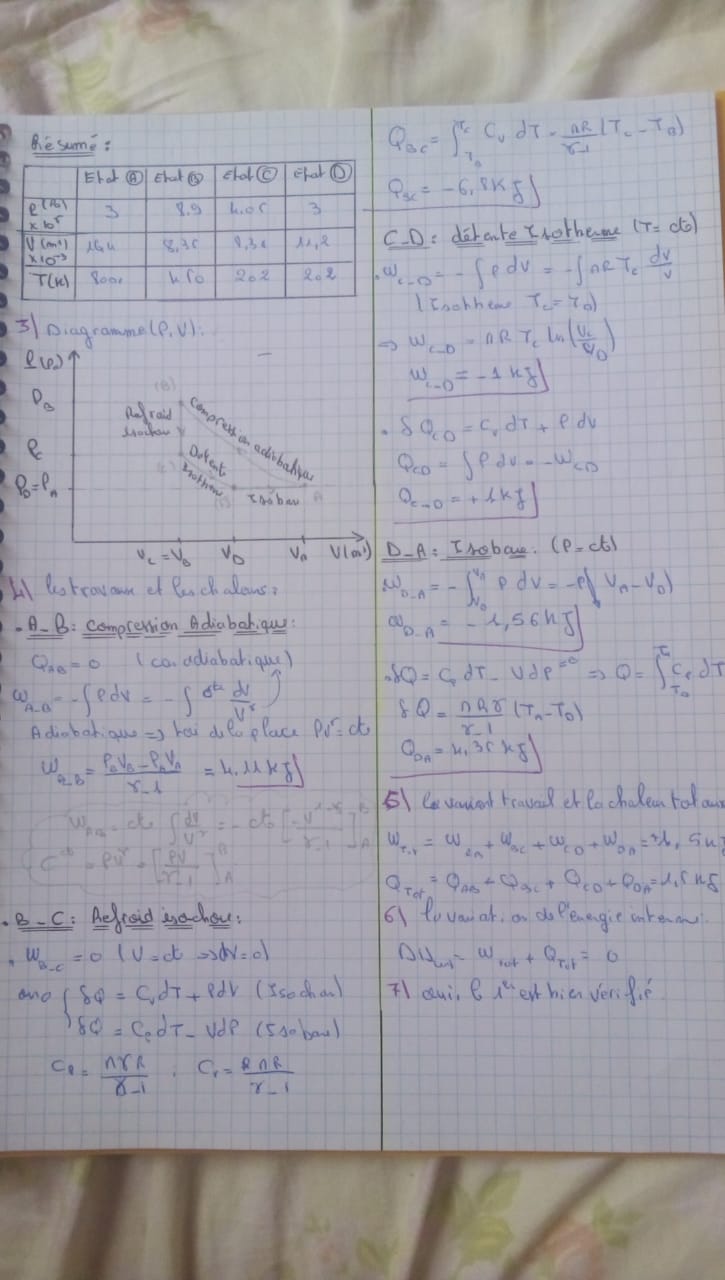 Résumé :
Etat Ⓐ Etat Ⓑ Etat Ⓒ Etat Ⓓ
P (Pa) x10⁵ 3 8.9 4.05 3
V (m³) x10⁻³ 8,3 11,2
T(K) 202 202
3) Diagramme (P, V) :
P (Pa)
P_B
(B)
Refroid isochor
Compression adiabatique
P_C
Detent isotherm
P_D = P_A
Isobar A
V_C = V_B V_D V_A V(m³)
4) les travaux et les chaleurs :
. A_B : Compression Adiabatique :
Q_AB = 0 (car adiabatique)
W_A-B = -∫PdV = -∫ cte dV/V^γ
Adiabatique => loi de la place PV^γ = cte
W_A-B = (P_B V_B - P_A V_A)/(γ-1) = 4.11 KJ
W_AB = - cte ∫ dV/V^γ = - cte [ - V^(1-γ)/(γ-1) ]_A^B
cte = PV^γ = [ PV/(γ-1) ]_A^B
. B_C : Refroid isochor :
. W_B-C = 0 (V = ct => dV = 0)
δQ = C_v dT + PdV (Isochor)
δQ = C_p dT - VdP (Isobar)
C_p = nγR/(γ-1) , C_v = nR/(γ-1)
Q_BC = ∫_{T_B}^{T_C} C_v dT = nR/(γ-1) (T_C - T_B)
Q_BC = -6,8 KJ
C_D : détente Isotherme (T = cte)
. W_C-D = -∫ P dV = -∫ nRT_C dV/V
(Isotherm T_C = T_D)
=> W_C-D = nR T_C ln(V_C/V_D)
W_C-D = -1 KJ
. δQ_CD = C_v dT + P dV
Q_CD = ∫ P dV = -W_CD
Q_C-D = +1 KJ
D_A : Isobare. (P = cte)
. W_D-A = -∫_{V_D}^{V_A} P dV = -P(V_A - V_D)
W_D-A = -1,56 KJ
. δQ = C_p dT - VdP⁼⁰ => Q = ∫_{T_D} C_p dT
δQ = nRγ/(γ-1) (T_A - T_D)
Q_DA = 4,35 KJ
5) travail et la chaleur totaux
W_Tot = W_BA + W_BC + W_CD + W_DA =
Q_Tot = Q_AB + Q_BC + Q_CD + Q_DA = 1,5 KJ
6) la variation de l'énergie interne :
= W_tot + Q_Tot = 0
7) oui, le 1er est bien vérifié